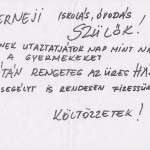 ERNEJI ISKOLÁS, ÓVODÁS
SZÜLŐK!
NEK UTAZTATJÁTOK NAP MINT NA
A GYERMEKEKET
TÁN RENGETEG AZ ÜRES HÁ
SEGÉLYT IS RENDESEN FIZESSÜK
KÖLTÖZZETEK!